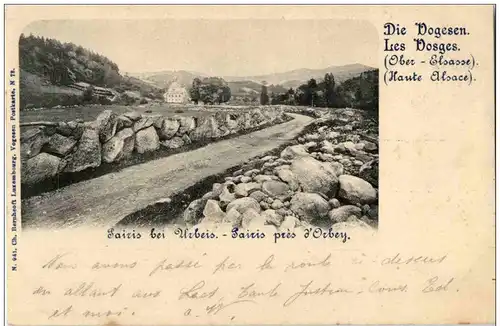 Die Vogesen.
Les Vosges.
(Ober-Elsasse).
(Haute Alsace).
N. 941, Ch. Bernhoeft Luxembourg, Vogesen Postkarte, N 75.
Pairis bei Urbeis. - Pairis près d'Orbey.
Nous avons passé par la route ci-dessus
en allant aux Lacs, Tante
et moi.